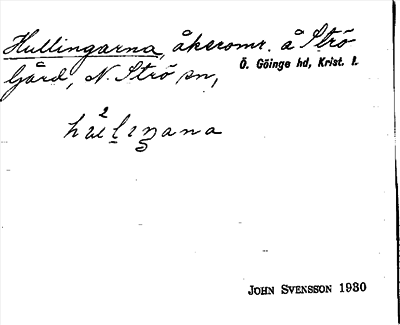 Hullingarna, åkeromr. å Strö
Gård, N. Strö sn,
Ö. Göinge hd, Krist. l.
JOHN SVENSSON 1930